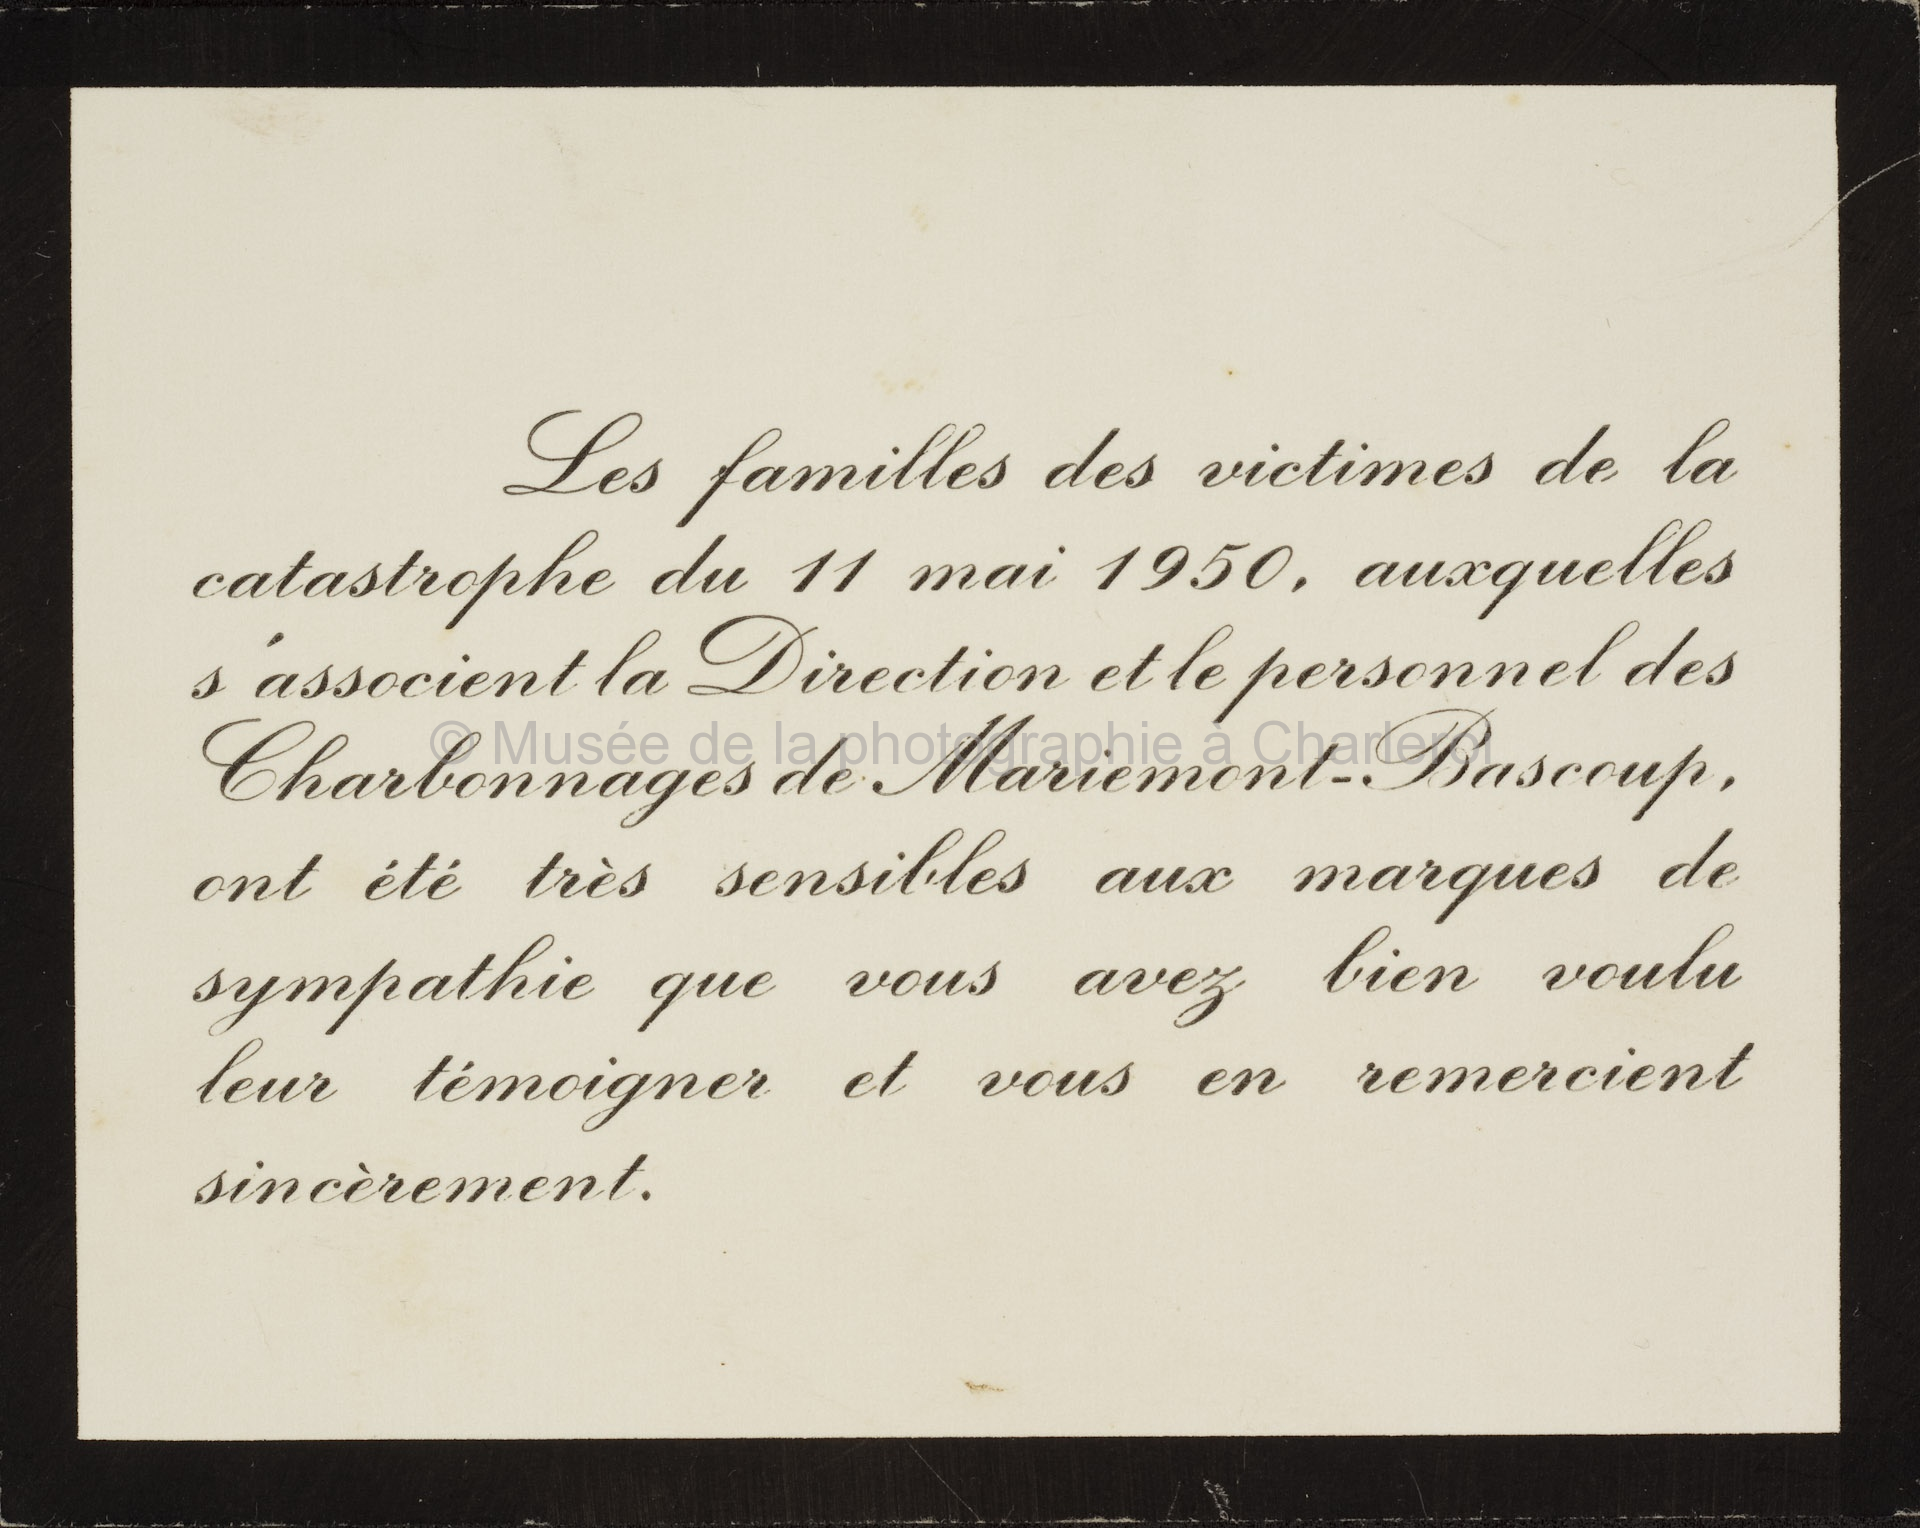 Les familles des victimes de la
catastrophe du 11 mai 1950, auxquelles
s'associent la Direction et le personnel des
© Musée de la photographie à Charleroi
Charbonnages de Mariemont-Bascoup,
ont été très sensibles aux marques de
sympathie que vous avez bien voulu
leur témoigner et vous en remercient
sincèrement.